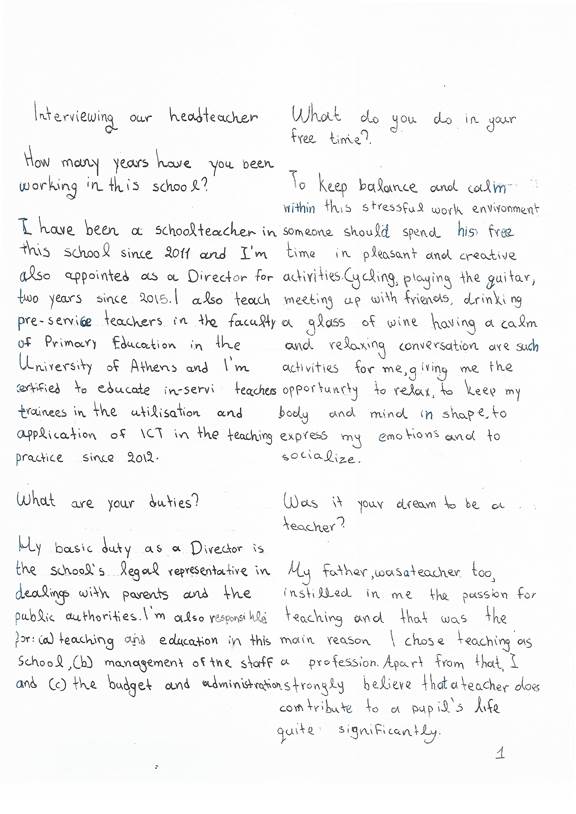 Interviewing our headteacher
How many years have you been
working in this school?
I have been a schoolteacher in
this school since 2011 and I'm
also appointed as a Director for
two years since 2015. I also teach
pre-service teachers in the faculty
of Primary Education in the
University of Athens and I'm
certified to educate in-servi teachers
trainees in the utilisation and
application of ICT in the teaching
practice since 2012.
What are your duties?
My basic duty as a Director is
the school's legal representative in
dealings with parents and the
public authorities. I'm also responsible
for: (a) teaching and education in this
school, (b) management of the staff
and (c) the budget and administration
What do you do in your
free time?
To keep balance and calm
within this stressful work environment
someone should spend his free
time in pleasant and creative
activities. Cycling, playing the guitar,
meeting up with friends, drinking
a glass of wine having a calm
and relaxing conversation are such
activities for me, giving me the
opportunity to relax, to keep my
body and mind in shape, to
express my emotions and to
socialize.
Was it your dream to be a
teacher?
My father, was a teacher too,
instilled in me the passion for
teaching and that was the
main reason I chose teaching as
a profession. Apart from that, I
strongly believe that a teacher does
contribute to a pupil's life
quite significantly.
1